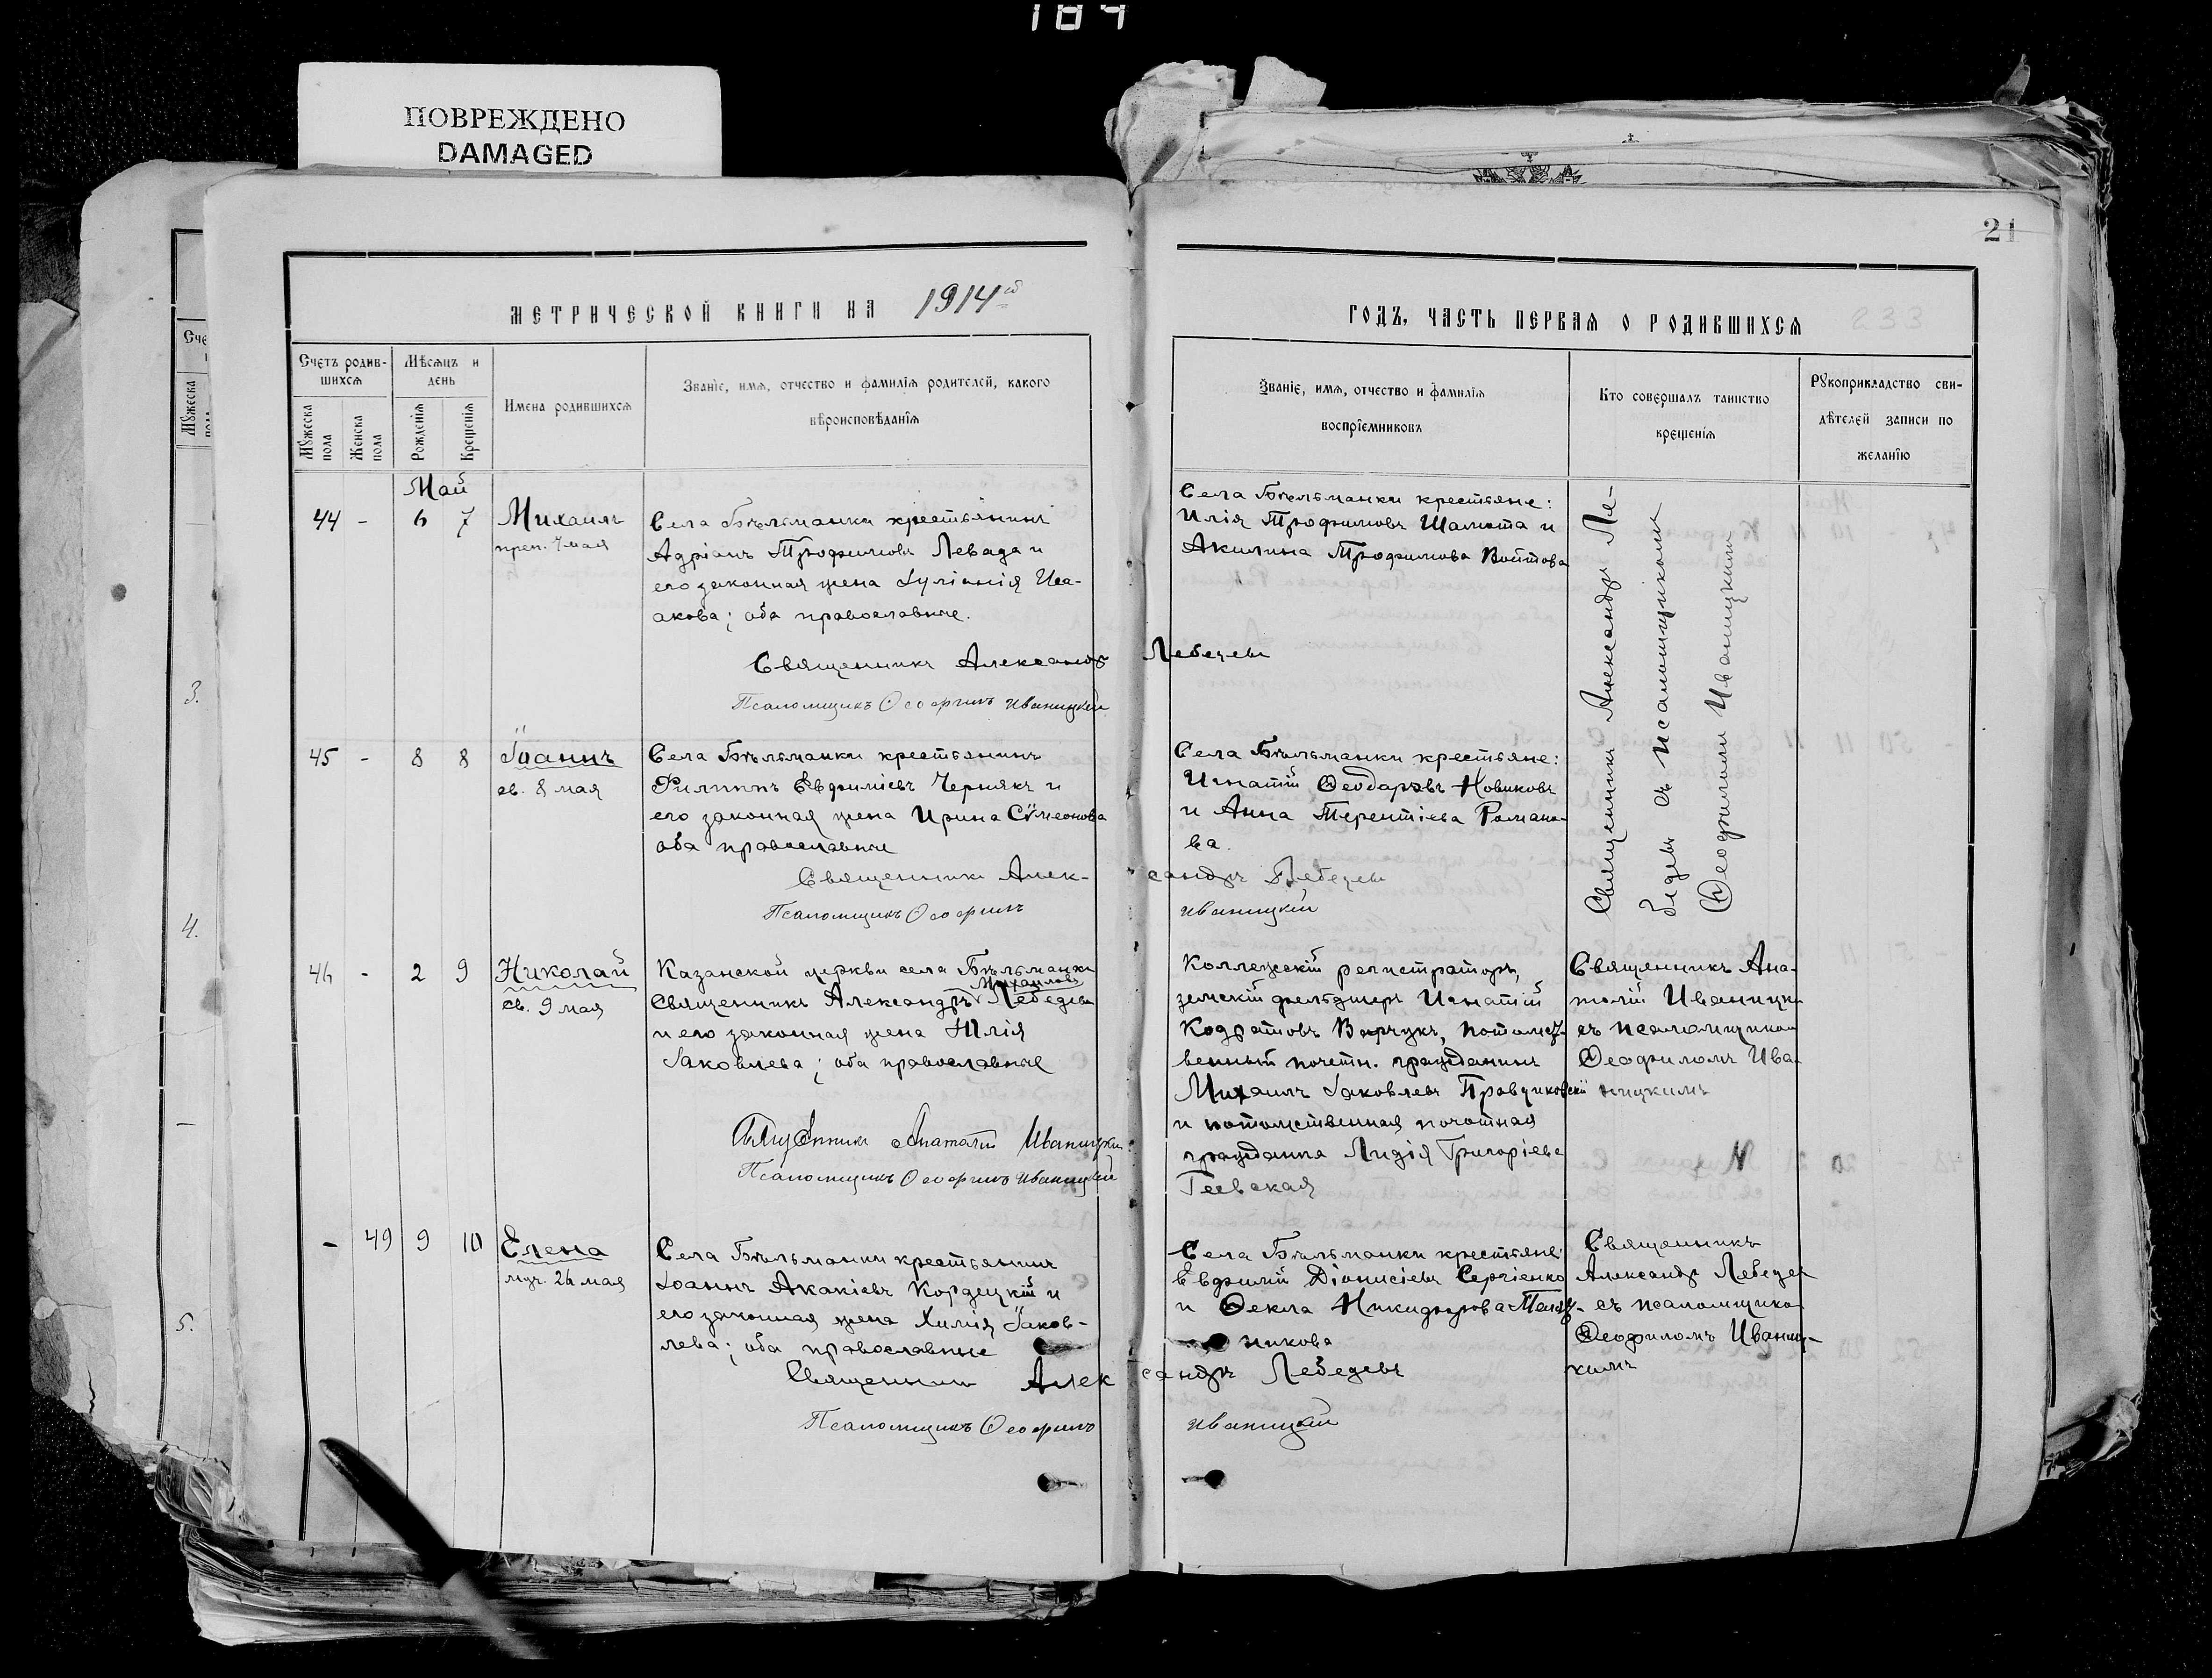 184
ПОВРЕЖДЕНО
DAMAGED
21
МЕТРИЧЕСКОЙ КНИГИ НА 1914й
ГОДЪ, ЧАСТЬ ПЕРВАЯ О РОДИВШИХСЯ
233
Счетъ родив-
шихся
Мѣсяцъ и
день
Мужеска
пола
Женска
пола
Рожденія
Крещенія
Имена родившихся
Званіе, имя, отчество и фамилія родителей, какого
вѣроисповѣданія
Званіе, имя, отчество и фамилія
воспріемниковъ
Кто совершалъ таинство
крещенія
Рукоприкладство сви-
дѣтелей записи по
желанію
Май
44 - 6 7
Михаилъ
преп. 7 мая
Села Бѣльманки крестьянинъ
Адріанъ Трофимовъ Левада и
его законная жена Іуліанія Иса-
акова; оба православные.
Священникъ Александръ Лебедевъ
Псаломщикъ Ѳеофилъ Иваницкій
Села Бѣльманки крестьяне:
Илія Трофимовъ Шамота и
Акилина Трофимова Воитова
Священникъ Александръ Ле-
бедевъ съ псаломщикомъ
Ѳеофиломъ Иваницкимъ
45 - 8 8
Іоаннъ
св. 8 мая
Села Бѣльманки крестьянинъ
Филиппъ Евфиміевъ Чернякъ и
его законная жена Ирина Сѵмеонова
оба православные
Священникъ Алек-сандръ Лебедевъ
Псаломщикъ Ѳеофилъ Иваницкій
Села Бѣльманки крестьяне:
Игнатій Ѳеодоровъ Новиковъ
и Анна Терентіева Романо-
ва.
46 - 2 9
Николай
св. 9 мая
Казанской церкви села Бѣльманки
Михаиловъ
Священникъ Александръ Лебедевъ
и его законная жена Юлія
Іаковлева; оба православные
Священникъ Анатолій Иваницкій
Псаломщикъ Ѳеофилъ Иваницкій
Коллежскій регистраторъ,
земскій фельдшеръ Игнатій
Кодратовъ Варчукъ, потомст-
венный почетн. гражданинъ
Михаилъ Іаковлевъ Правдиковскій
и потомственная почотная
гражданка Лидія Григоріева
Геевская
Священникъ Ана-
толій Иваницкі
съ псаломщиком
Ѳеофиломъ Ива-
ницкимъ
- 49 9 10
Елена
муч. 26 мая
Села Бѣльманки крестьянинъ
Іоаннъ Акакіевъ Кордецкій и
его законная жена Іаков-
лева; оба православные
Священникъ Александръ Лебедевъ
Псаломщикъ Ѳеофилъ Иваницкій
Села Бѣльманки крестьяне:
Евфимій Діонисіевъ Сергіенко
и Ѳекла Никифорова
никова
Священникъ
Александръ Лебедев
съ псаломщико
Ѳеофиломъ Иваниц-
кимъ
3.
4.
5.